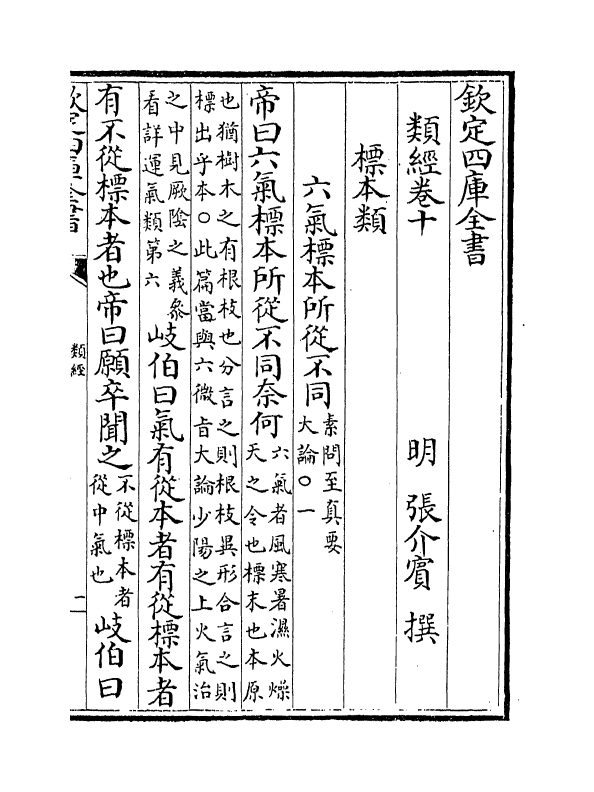 欽定四庫全書
類經卷十　明　張介賓　撰
標本類
六氣標本所從不同素問至真要
大論○一
帝曰六氣標本所從不同奈何六氣者風寒暑濕火燥
天之令也標末也本原
也猶樹木之有根枝也分言之則根枝異形合言之則
標出乎本○此篇當與六微㫖大論少陽之上火氣治
之中見厥陰之義叅
看詳運氣類第六
岐伯曰氣有從本者有從標本者
有不從標本者也帝曰願卒聞之不從標本者
從中氣也
岐伯曰
類經